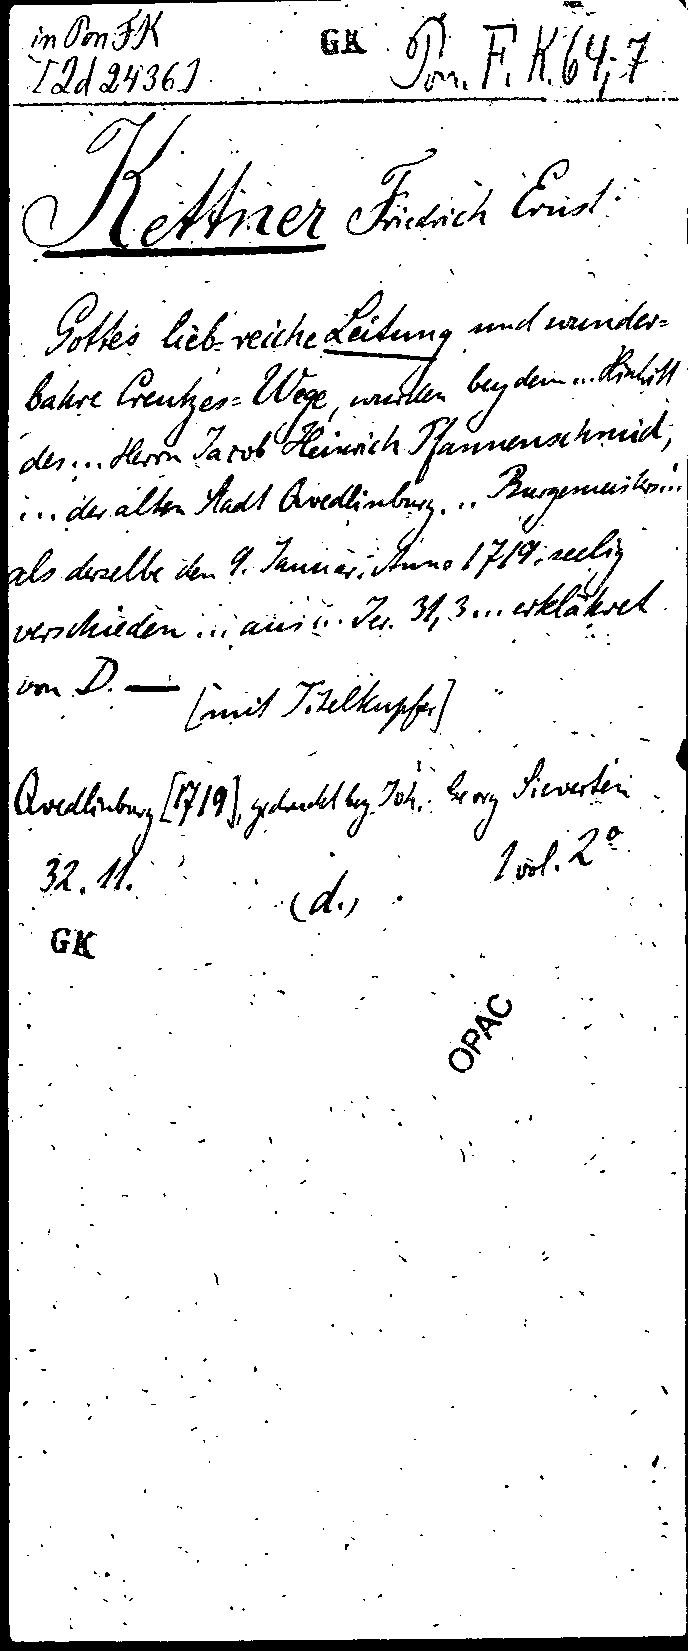 in Pon FK GK Pon. F. K. 64,7
[Zd 2436]
Kettner Friedrich Ernst
Gottes lieb-reiche Leitung und wunder-
bahre Creutzes-Wege, wurden bey dem ... Hintritt
des ... Herrn Jacob Heinrich Pfannenschmid,
... der alten Stadt Qvedlinburg ... Burgemeisters ...
als derselbe den 9. Januar. Anno 1719. seelig
verschieden ... aus ... Jer. 31,3 ... erklähret
von D. — [mit Titelkupfer]
Qvedlinburg [1719], gedruckt bey Joh. Georg Sieverten
32. 11. (d.) 1 vol. 2°
GK
OPAC